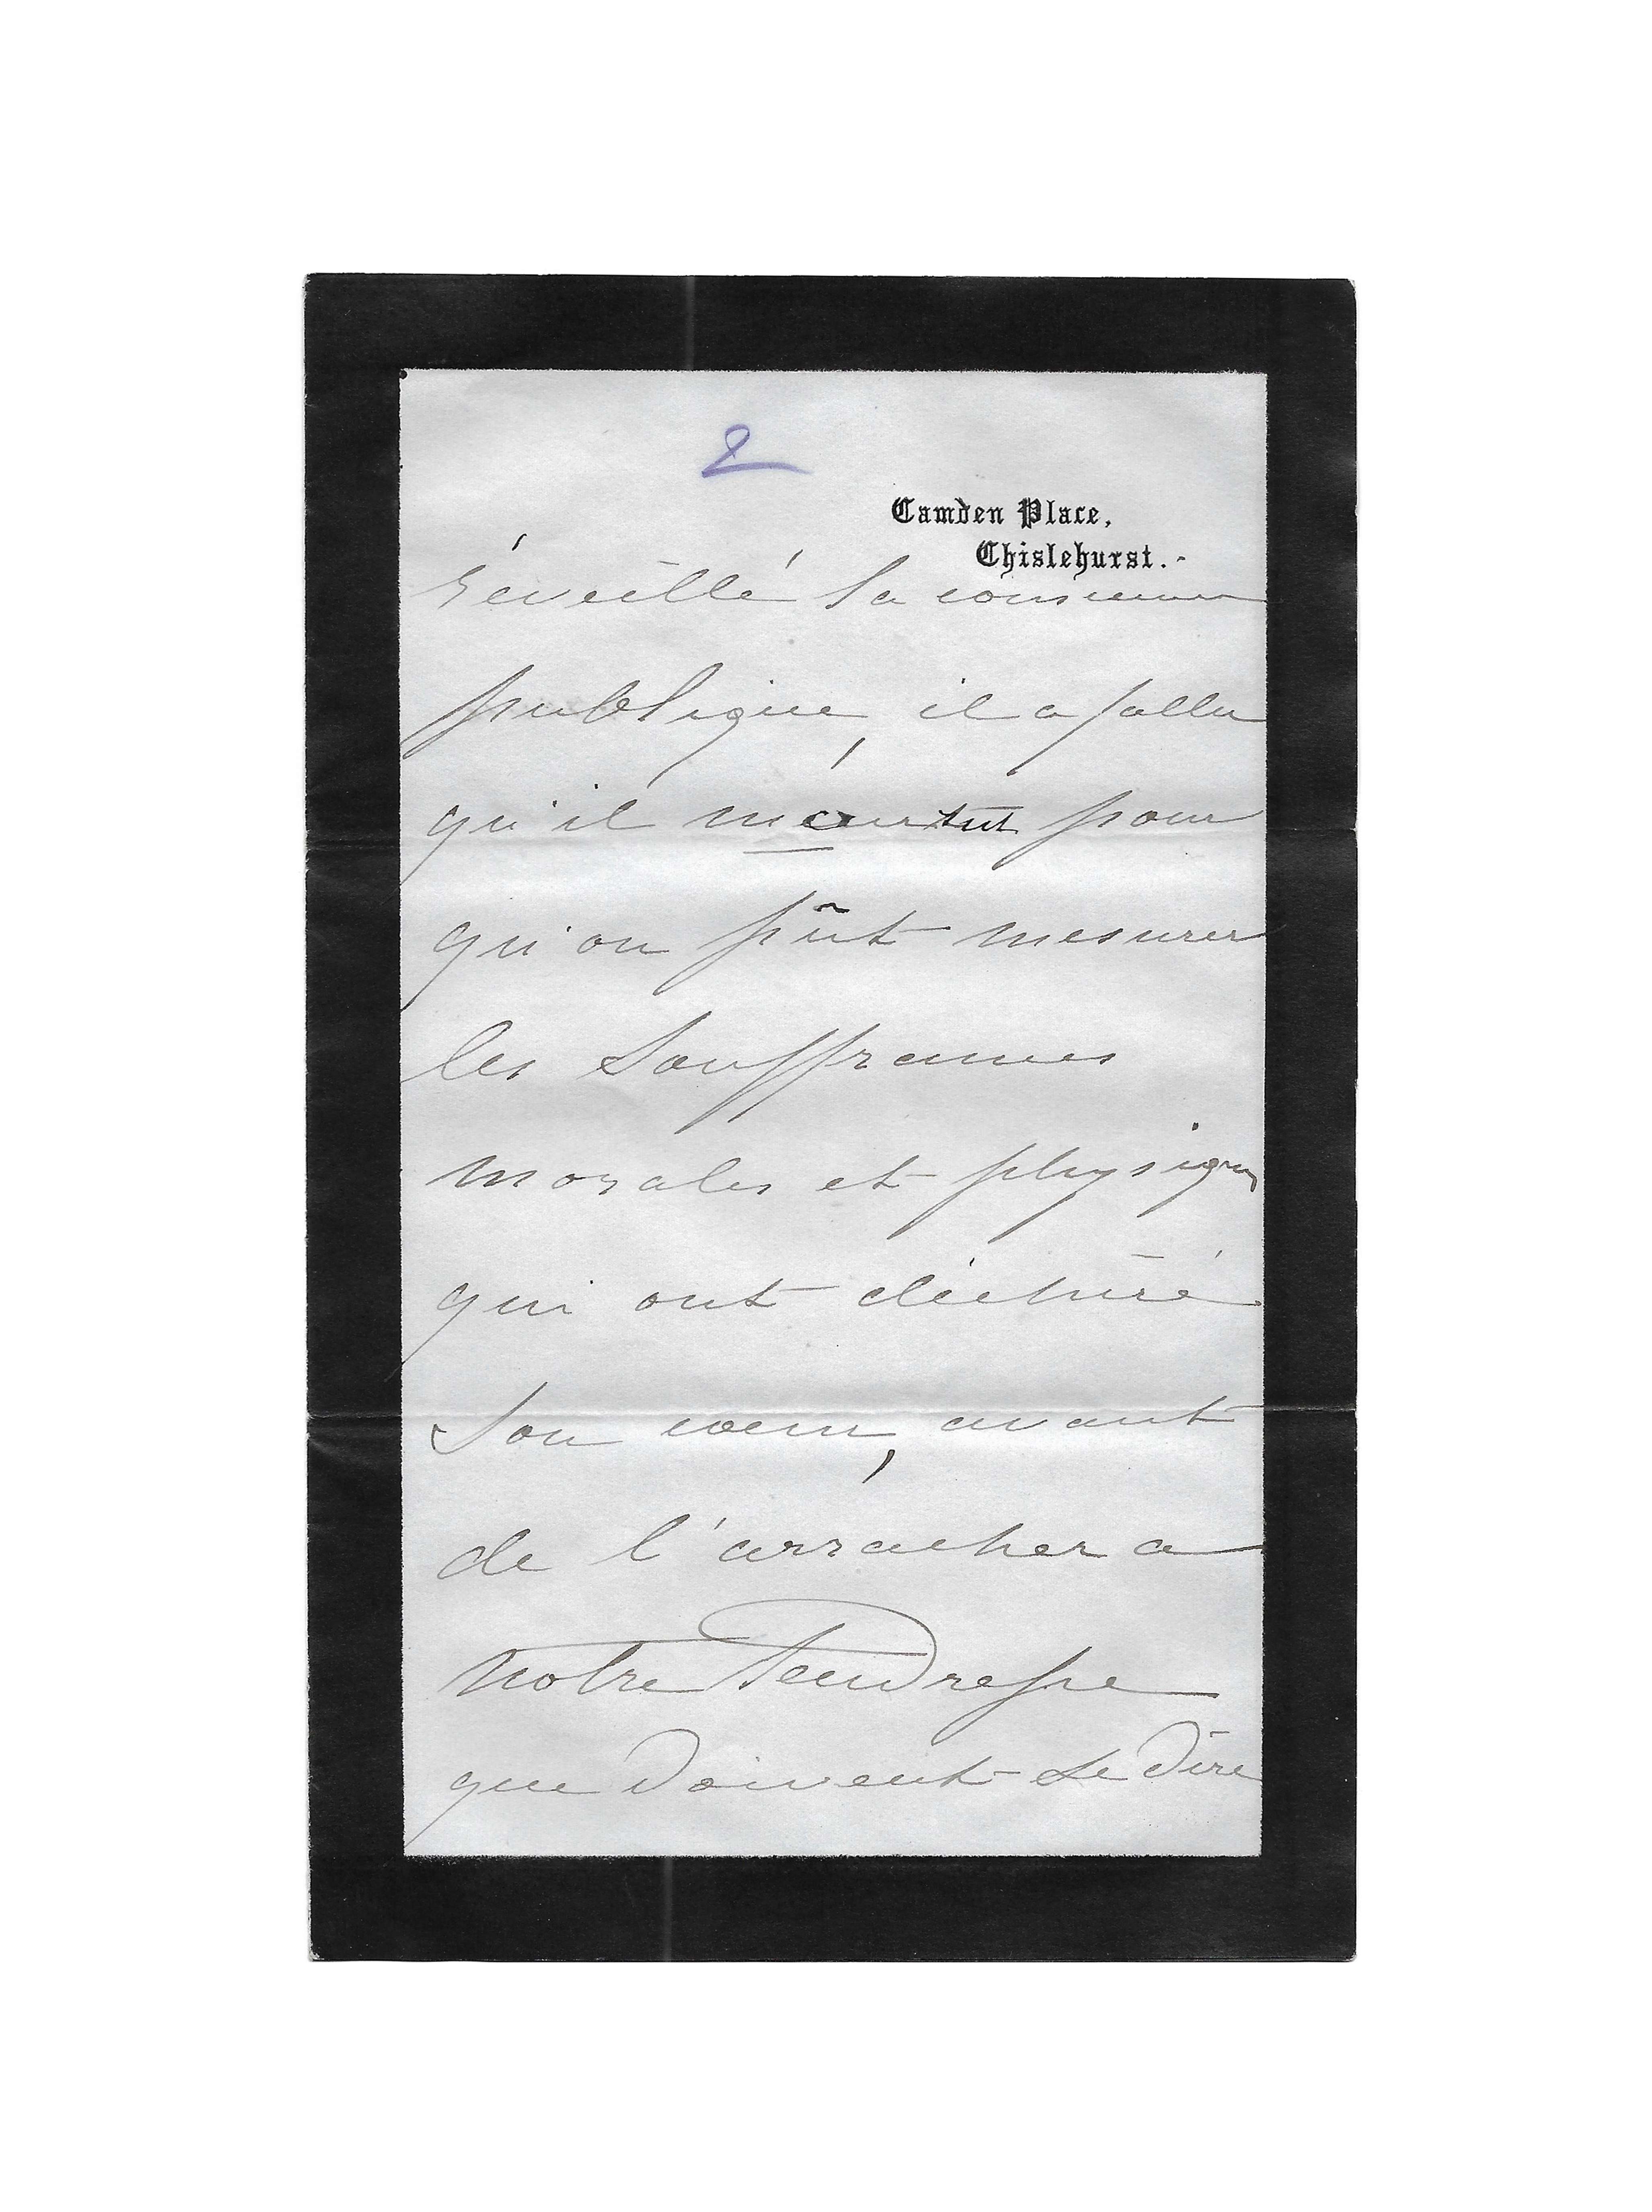 2
Camden Place,
Chislehurst.-
réveillé la conscience
publique, il a fallu
qu'il mourut pour
qu'on pût mesurer
les Souffrances
morales et physiques
qui ont déchiré
Son coeur, avant
de l'arracher a
notre Tendresse
que Doivent se Dire